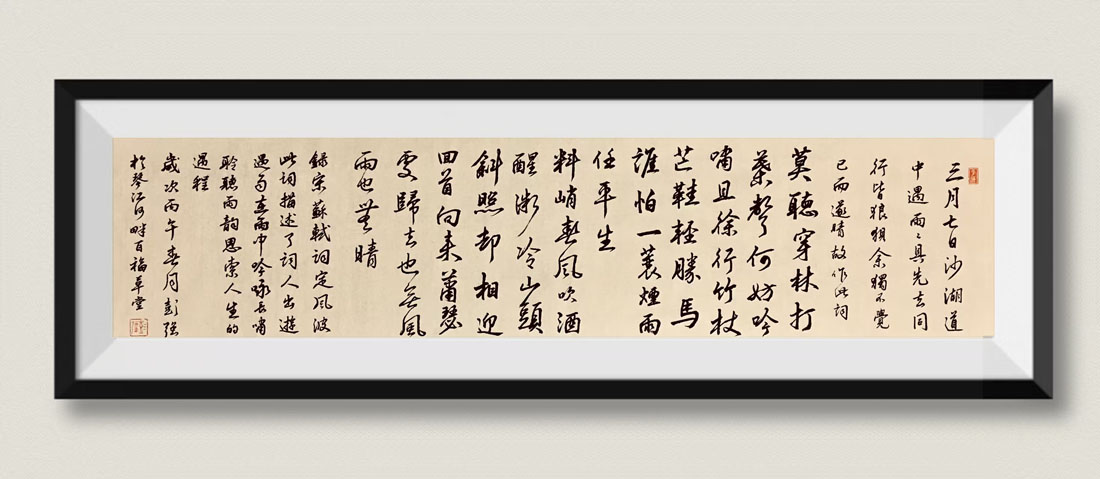 三月七日沙湖道
中遇雨々具先去同
行皆狼狽余獨不覺
已而遂晴故作此詞
莫聽穿林打
葉聲何妨吟
嘯且徐行竹杖
芒鞋輕勝馬
誰怕一蓑煙雨
任平生
料峭春風吹酒
醒微冷山頭
斜照却相迎
回首向来蕭瑟
處歸去也無風
雨也無晴
録宋蘇軾詞定風波
此詞描述了詞人出遊
遇雨在雨中吟咏長嘯
聆聽雨韵思索人生的
過程
歲次丙午春月彭強
於琴江河畔百福草堂